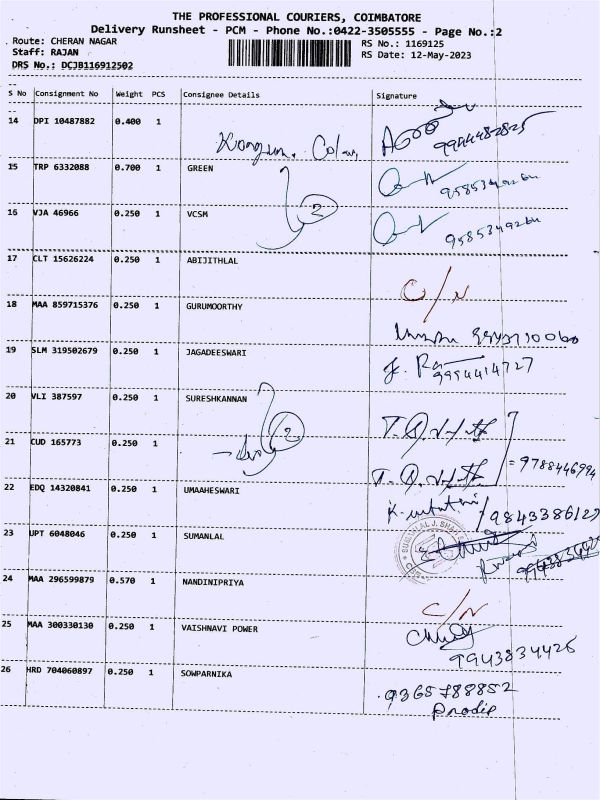 THE PROFESSIONAL COURIERS, COIMBATORE
Delivery Runsheet - PCM - Phone No.:0422-3505555 - Page No.:2
Route: CHERAN NAGAR
RS No.: 1169125
Staff: RAJAN
RS Date: 12-May-2023
DRS No.: DCJB116912502
S No Consignment No Weight PCS Consignee Details Signature
14 DPI 10487882 0.400 1
9944482825
15 TRP 6332088 0.700 1 GREEN
2
16 VJA 46966 0.250 1 VCSM
17 CLT 15626224 0.250 1 ABIJITHLAL
C/N
18 MAA 859715376 0.250 1 GURUMOORTHY
19 SLM 319502679 0.250 1 JAGADEESWARI
9994414727
20 VLI 387597 0.250 1 SURESHKANNAN
2
21 CUD 165773 0.250 1
= 9788446994
22 EDQ 14320841 0.250 1 UMAAHESWARI
9843386127
23 UPT 6048046 0.250 1 SUMANLAL
24 MAA 296599879 0.570 1 NANDINIPRIYA
C/N
25 MAA 300330130 0.250 1 VAISHNAVI POWER
9943834426
26 HRD 704060897 0.250 1 SOWPARNIKA
9365788852
Prodip